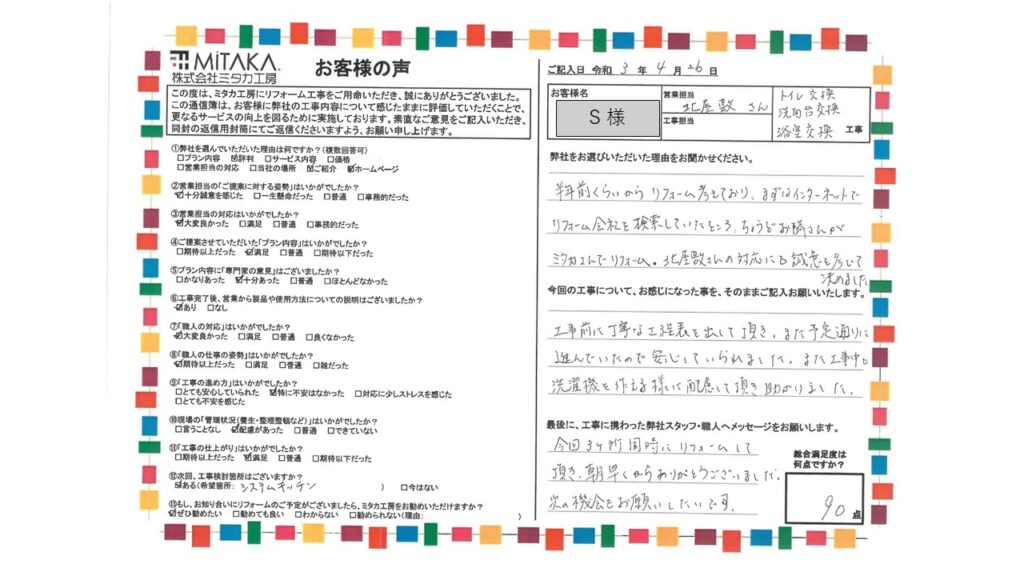 MiTAKA
株式会社ミタカ工房
お客様の声
この度は、ミタカ工房にリフォーム工事をご用命いただき、誠にありがとうございました。
この通信簿は、お客様に弊社の工事内容について感じたままに評価していただくことで、
更なるサービスの向上を図るために実施しております。素直なご意見をご記入いただき、
同封の返信用封筒にてご返信くださいますよう、お願い申し上げます。
①弊社を選んでいただいた理由は何ですか?(複数回答可)
□プラン内容 ☑評判 □サービス内容 □価格
□営業担当の対応 □当社の場所 ☑ご紹介 ☑ホームページ
②営業担当の「ご提案に対する姿勢」はいかがでしたか?
☑十分誠意を感じた □一生懸命だった □普通 □事務的だった
③営業担当の対応はいかがでしたか?
☑大変良かった □満足 □普通 □事務的だった
④ご提案させていただいた「プラン内容」はいかがでしたか?
□期待以上だった ☑満足 □普通 □期待以下だった
⑤プラン内容に「専門家の意見」はございましたか?
□かなりあった ☑十分あった □普通 □ほとんどなかった
⑥工事完了後、営業から製品や使用方法についての説明はございましたか?
☑あり □なし
⑦「職人の対応」はいかがでしたか?
☑大変良かった □満足 □普通 □良くなかった
⑧「職人の仕事の姿勢」はいかがでしたか?
☑期待以上だった □満足 □普通 □雑だった
⑨「工事の進め方」はいかがでしたか?
□とても安心していられた ☑特に不安はなかった □対応に少しストレスを感じた
□とても不安を感じた
⑩現場の「管理状況(養生・整理整頓など)」はいかがでしたか?
□言うことなし ☑配慮があった □普通 □できていない
⑪「工事の仕上がり」はいかがでしたか?
□期待以上だった ☑満足 □普通 □期待以下だった
⑫次回、工事検討箇所はございますか?
☑ある(希望箇所: システムキッチン ) □今はない
⑬もし、お知り合いにリフォームのご予定がございましたら、ミタカ工房をお勧めいただけますか?
☑ぜひ勧めたい □勧めても良い □わからない □勧められない(理由: )
ご記入日 令和 3 年 4 月 26 日
お客様名
S 様
営業担当
北屋敷 さん
工事担当
トイレ交換
洗面台交換
浴室交換 工事
弊社をお選びいただいた理由をお聞かせください。
半年前くらいから リフォーム考えており、まずはインターネットで
リフォーム会社を検索していたところ、ちょうどお隣さんが
ミタカさんでリフォーム。北屋敷さんの対応にも誠意を感じて
決めました
今回の工事について、お感じになった事を、そのままご記入お願いいたします。
工事前に丁寧な工程表を出して頂き、また予定通りに
進んでいたので安心していられました。また工事中も
洗濯機を使える様に配慮して頂き助かりました。
最後に、工事に携わった弊社スタッフ・職人へメッセージをお願いします。
今回3ヶ所同時にリフォームして
頂き、朝早くからありがとうございました。
次の機会もお願いしたいです。
総合満足度は
何点ですか?
90 点